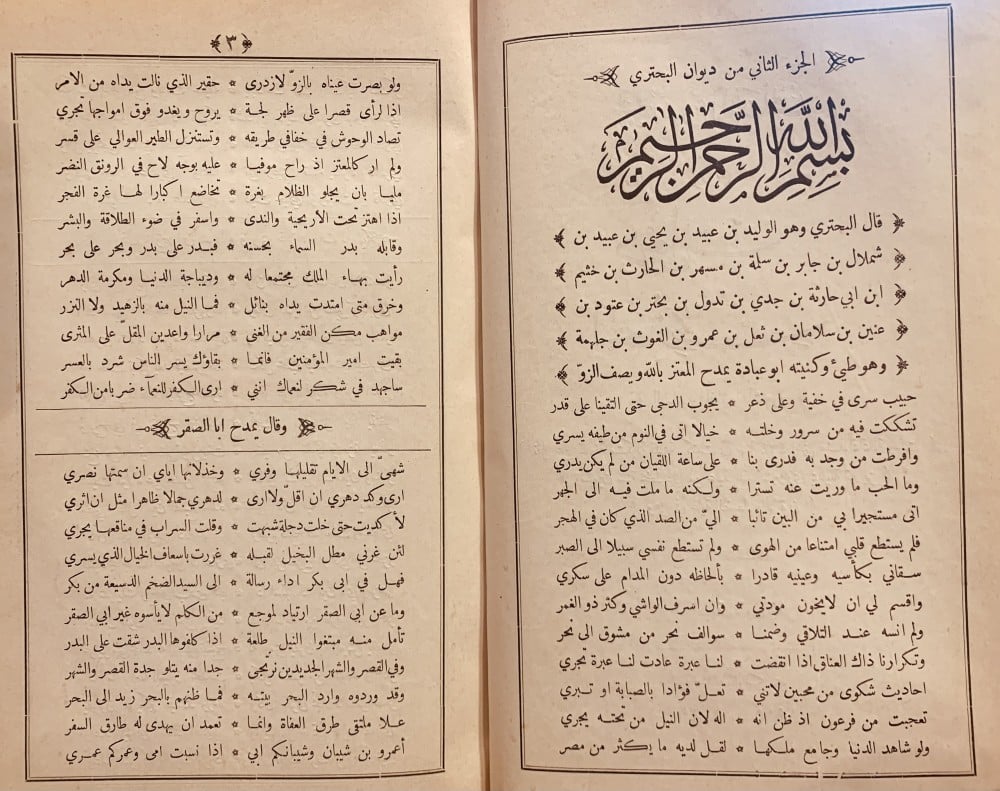 الجزء الثاني من ديوان البحتري
بسم الله الرحمن الرحيم
قال البحتري وهو الوليد بن عبيد بن يحيى بن عبيد بن
شملال بن جابر بن سلمة بن مسهر بن الحارث بن خثيم
ابن ابي حارثة بن جدي بن تدول بن بحتر بن عتود بن
عنين بن سلامان بن ثعل بن عمرو بن الغوث بن جلهمة
وهو طيئ وكنيته ابو عبادة يمدح المعتز بالله ويصف الزوّ
حبيب سرى في خفية وعلى ذعر * يجوب الدجى حتى التقينا على قدر
تشككت فيه من سرور وخلته * خيالا اتى في النوم من طيفه يسري
وافرطت من وجد به فدرى بنا * على ساعة اللقيان من لم يكن يدري
وما الحب ما وريت عنه تسترا * ولكنه ما ملت فيه الى الجهر
اتى مستجيرا بي من البين تائبا * اليّ من الصد الذي كان في الهجر
فلم يستطع قلبي امتناعا من الهوى * ولم تستطع نفسي سبيلا الى الصبر
سقاني بكأسيه وعينيه قادرا * بألحاظه دون المدام على سكري
واقسم لي ان لايخون مودتي * وان اسرف الواشي وكثر ذو الغمر
ولم انسه عند التلاقي وضمنا * سوالف نحر من مشوق الى نحر
وتكرارنا ذاك العناق اذا انقضت * لنا عبرة عادت لنا عبرة تجري
احاديث شكوى من محبين لاتني * تعلّ فؤادا بالصبابة او تبري
تعجبت من فرعون اذ ظن انه * اله لان النيل من تحته يجري
ولو شاهد الدنيا وجامع ملكها * لقل لديه ما يكثر من مصر
٣
ولو بصرت عيناه بالزوّ لازدرى * حقير الذي نالت يداه من الامر
اذا لرأى قصرا على ظهر لجة * يروح ويغدو فوق امواجها تجري
تصاد الوحوش في خفافي طريقه * وتستنزل الطير العوالي على قسر
ولم ار كالمعتز اذ راح موفيا * عليه بوجه لاح في الرونق النضر
مليا بان يجلو الظلام بغرة * تخاضع اكبارا لها غرة الفجر
اذا اهتز تحت الأريحية والندى * واسفر في ضوء الطلاقة والبشر
وقابله بدر السماء بحسنه * فبدر على بدر وبحر على بحر
رأيت بهاء الملك مجتمعا له * وديباجة الدنيا ومكرمة الدهر
وخرق متى امتدت يداه بنائل * فما النيل منه بالزهيد ولا النزر
مواهب مكن الفقير من الغنى * مرارا واعدين المقلّ على المثرى
بقيت امير المؤمنين فانما * بقاؤك يسر الناس شرد بالعسر
ساجهد في شكر لنعماك انني * ارى الكفر للنعمآء ضربا من الكفر
وقال يمدح ابا الصقر
شهيّ الى الايام تقليلها وفري * وخذلانها اياي ان سمتها نصري
ارى وكد دهري ان اقلّ ولا ارى * لدهري جمالا ظاهرا مثل ان اثري
لأكديت حتى خلت دجلة شبهت * وقلت السراب في مناقعها يجري
لئن غرني مطل البخيل لقبله * غررت باسعاف الخيال الذي يسري
فهل في ابي بكر اداء رسالة * الى السيد الضخم الدسيعة من بكر
وما عن ابي الصقر ارتياد لموجع * من الكلم لا يأسوه غير ابي الصقر
تأمل منه مبتغوا النيل طلعة * اذا كلفوها البدر شقت على البدر
وفي القصر والشهر الجديدين نرتجي * جدا منه يتلو جدة القصر والشهر
وقد وردوه وارد البحر بيته * فما ظنهم بالبحر زيد الى البحر
علا ملتقى طرق العفاة وانما * تعمد ان يهدى له طارق السفر
أعمرو بن شيبان وشيبانكم ابي * إذا نسبت امى وعمركم عمري